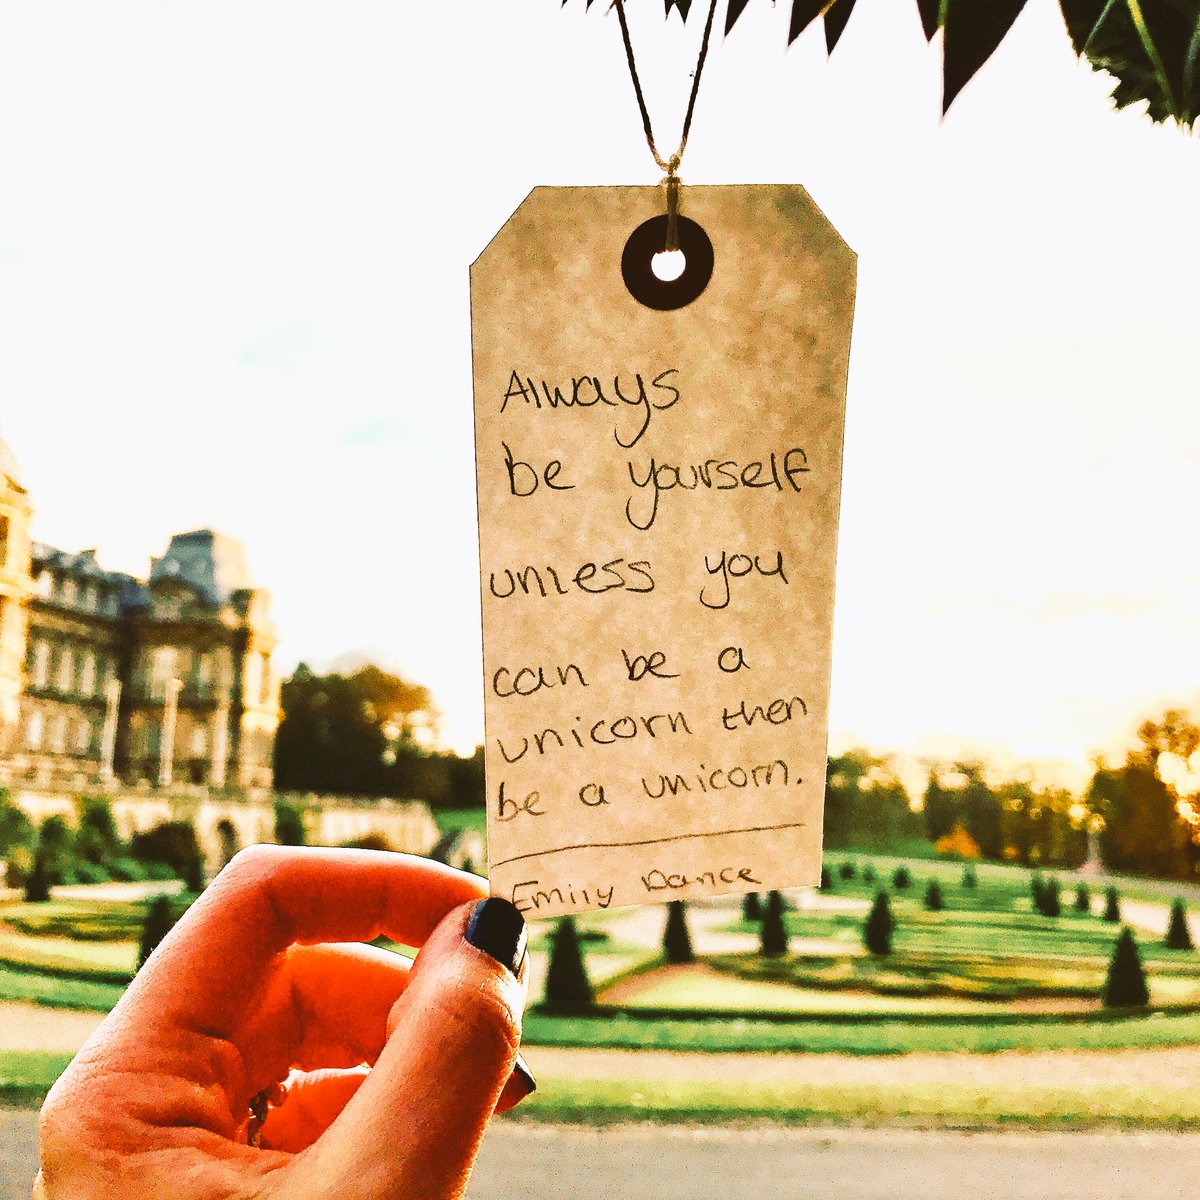 Always
be yourself
unless you
can be a
unicorn then
be a unicorn.
Emily Dance